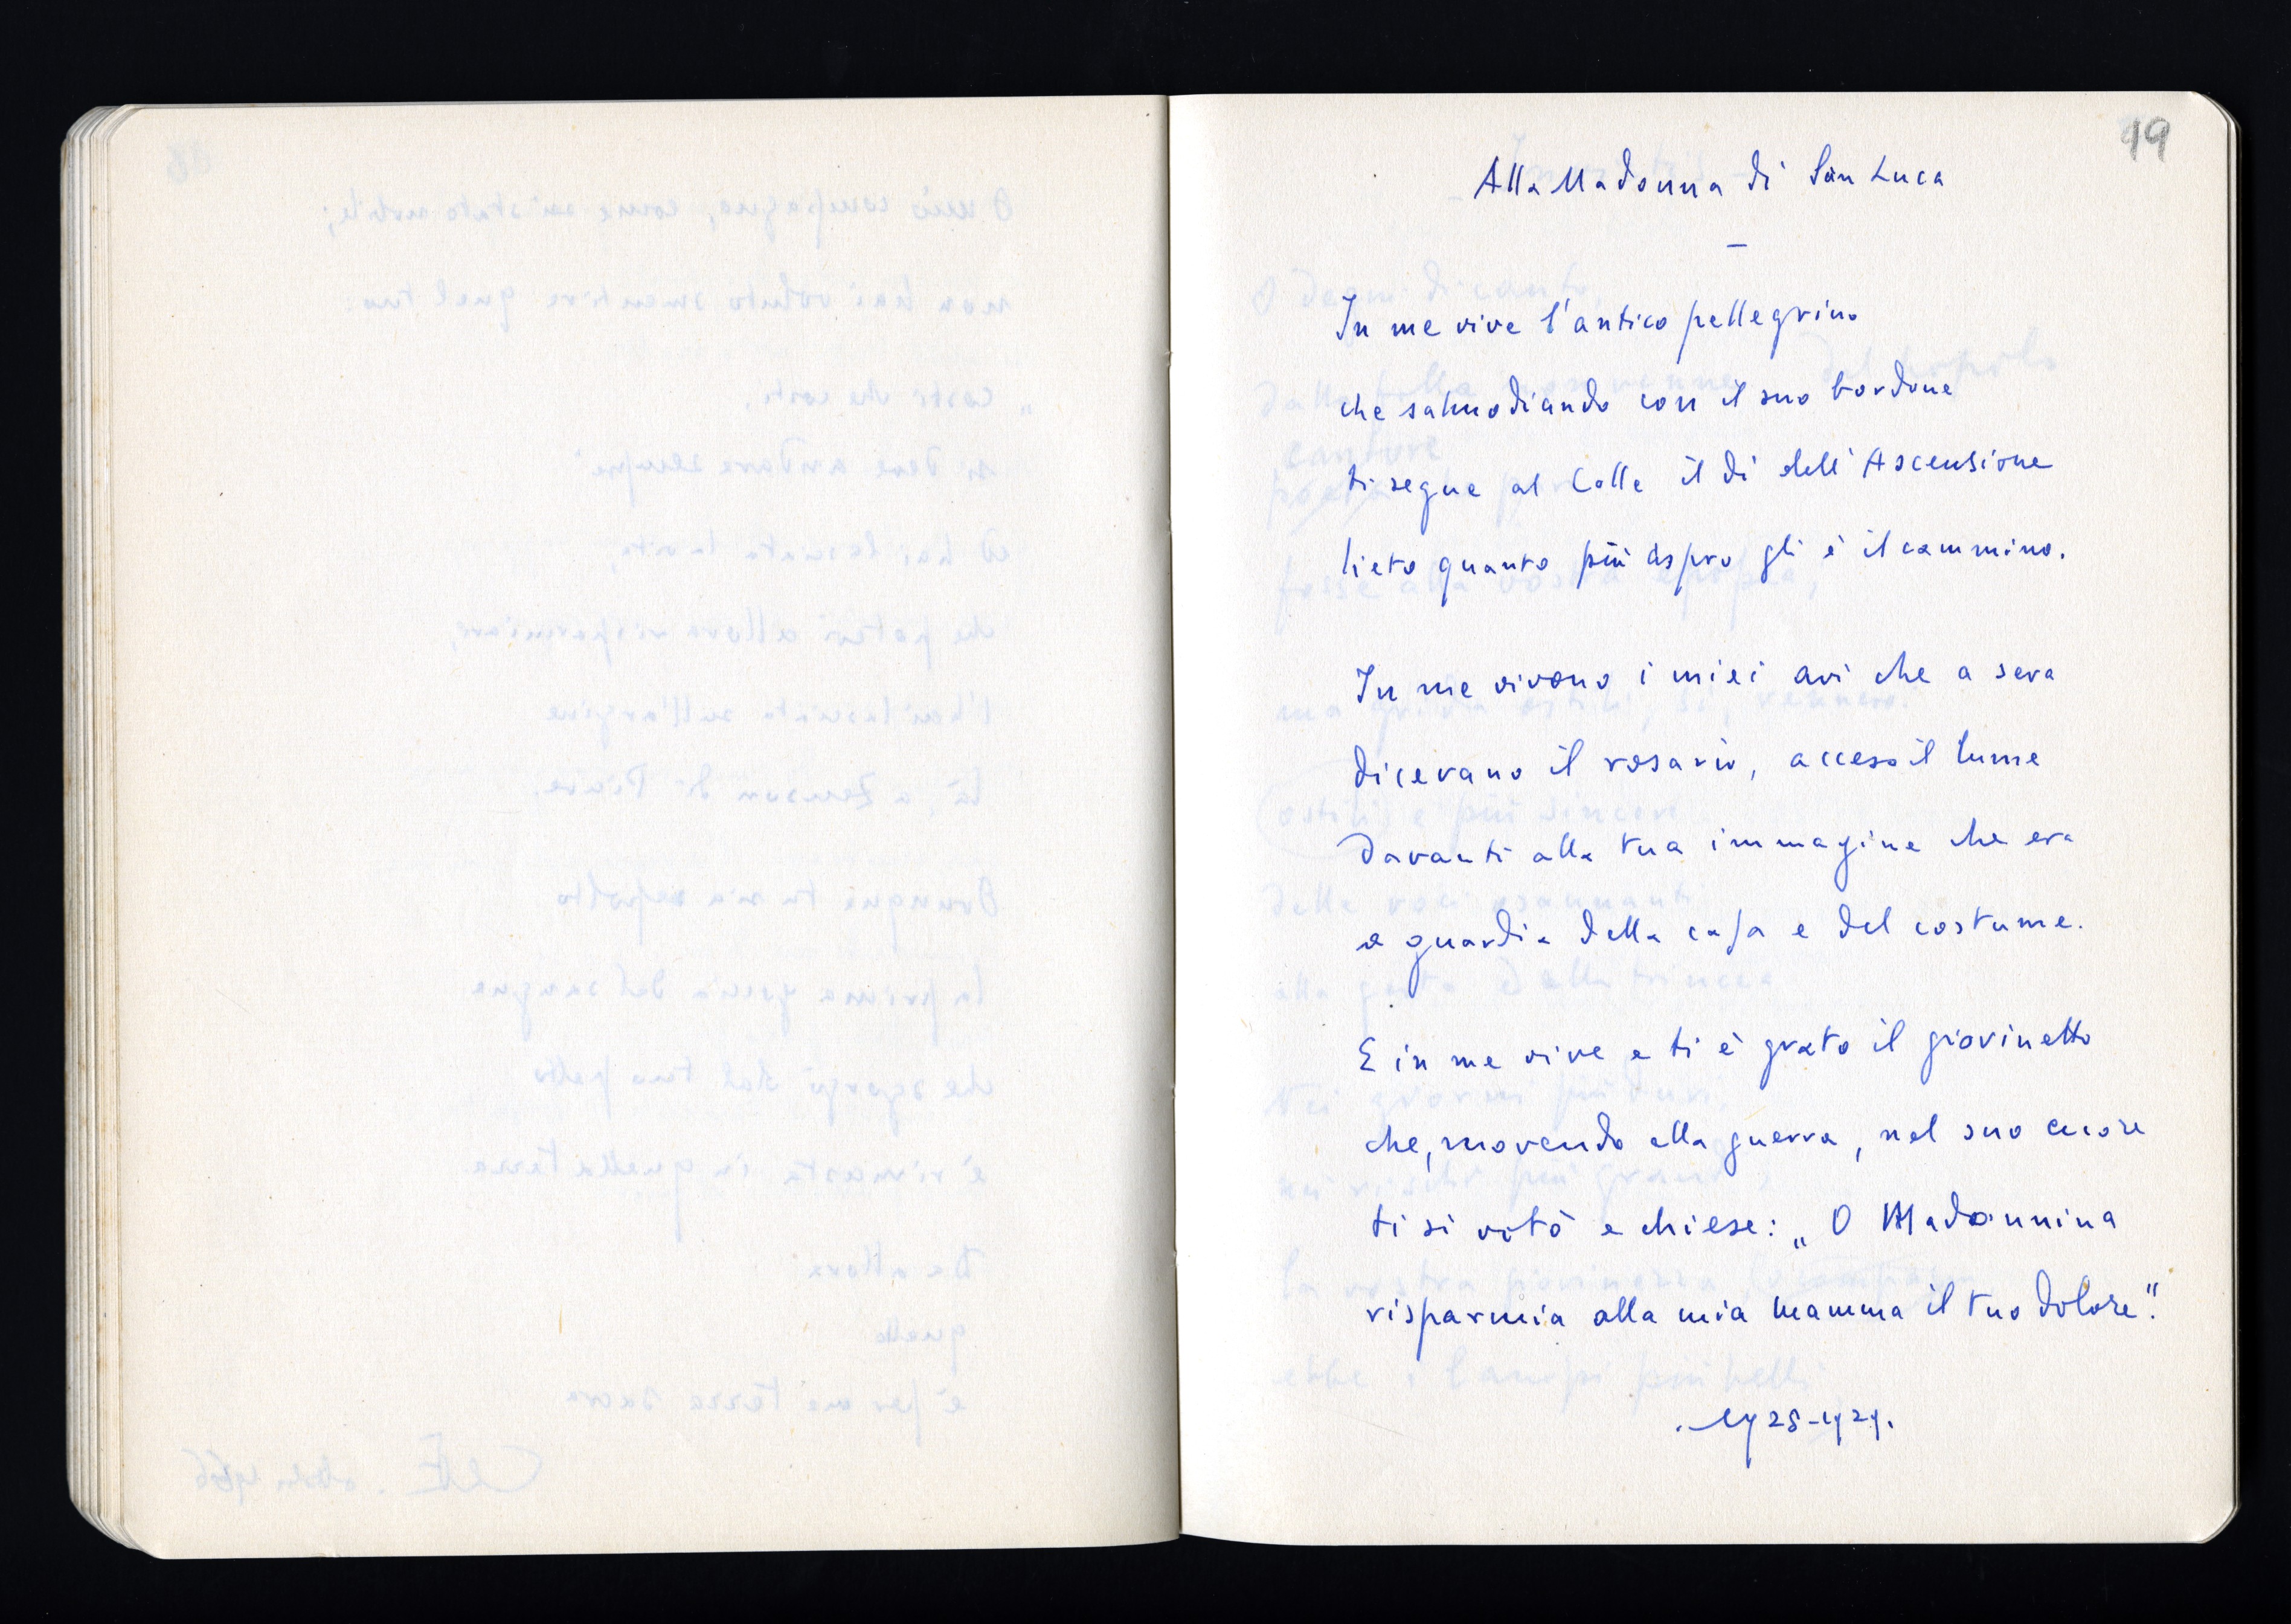 19
Alla Madonna di San Luca
–
In me vive l'antico pellegrino
che salmodiando con il suo bordone
ti segue al Colle il dì dell'Ascensione
lieto quanto più aspro gli è il cammino.
In me vivono i miei avi che a sera
dicevano il rosario, acceso il lume
davanti alla tua immagine che era
a guardia della casa e del costume.
E in me vive e ti è grato il giovinetto
che, movendo alla guerra, nel suo cuore
ti si votò e chiese: „O Madonnina
risparmia alla mia mamma il tuo dolore".
.1928-1929.